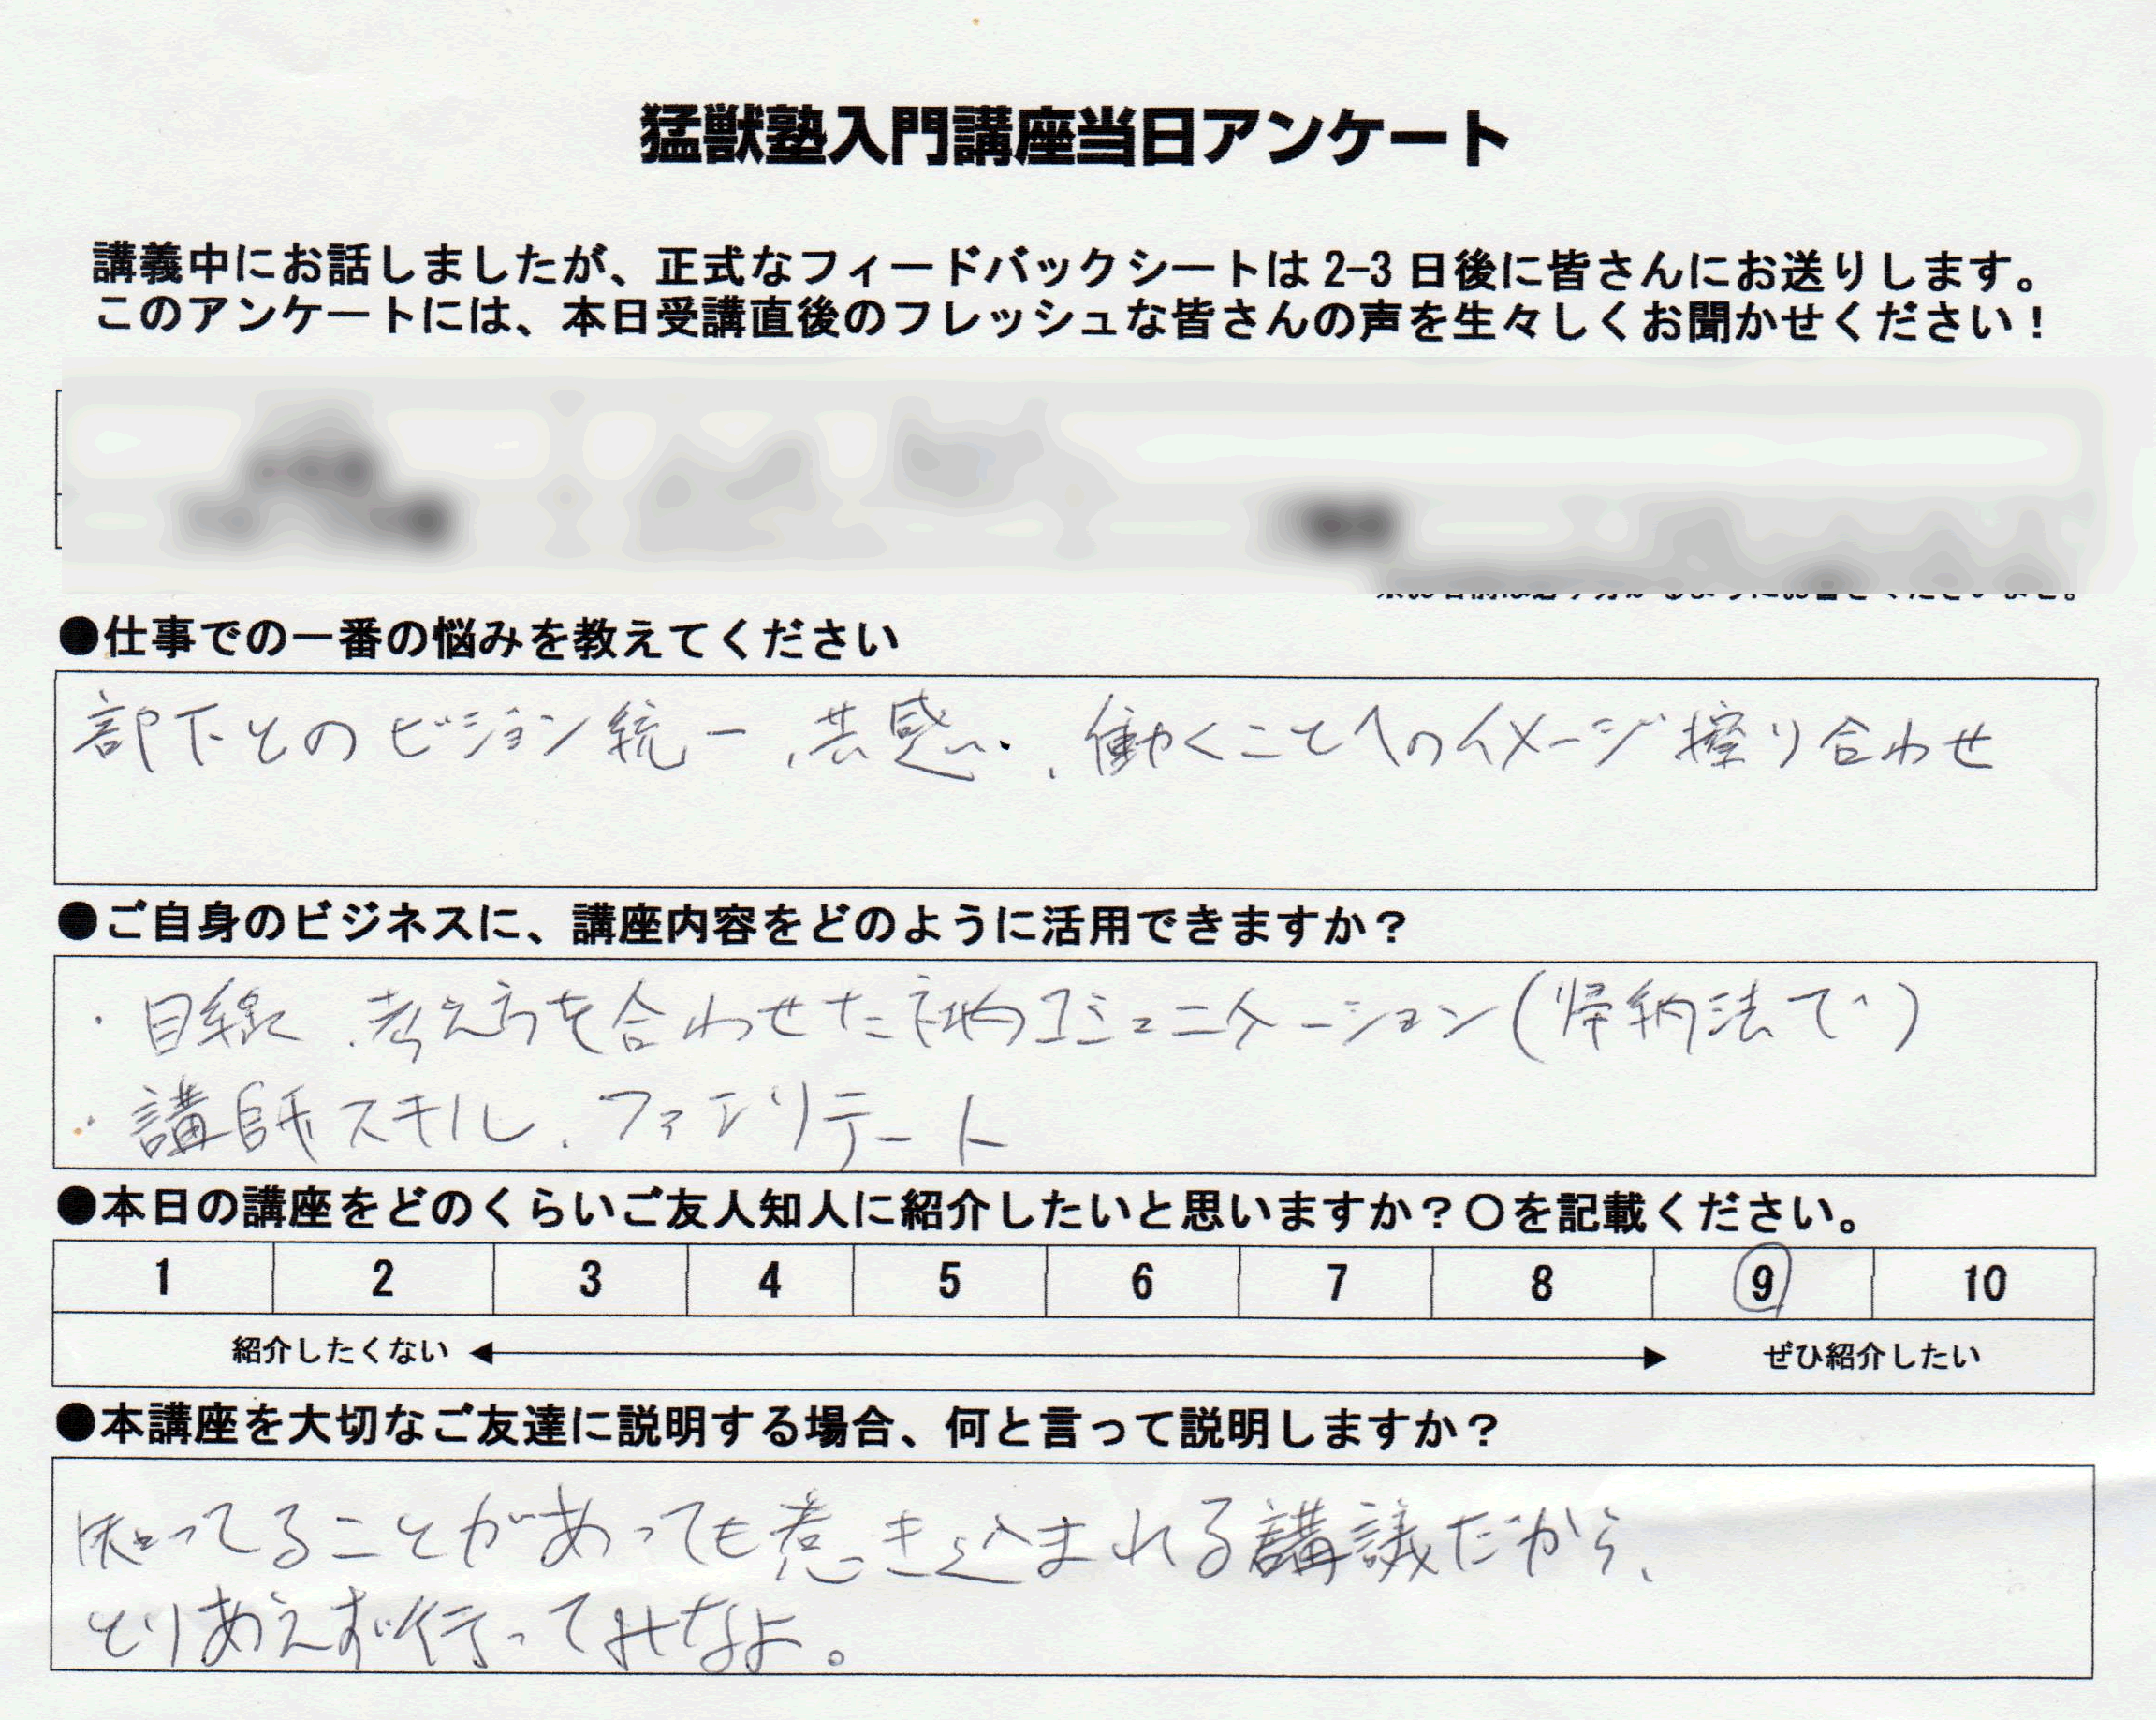 猛獣塾入門講座当日アンケート
講義中にお話しましたが、正式なフィードバックシートは2-3日後に皆さんにお送りします。
このアンケートには、本日受講直後のフレッシュな皆さんの声を生々しくお聞かせください！
●仕事での一番の悩みを教えてください
部下とのビジョン統一、共感、働くことへのイメージ擦り合わせ
●ご自身のビジネスに、講座内容をどのように活用できますか？
・目線、考え方を合わせた社内コミュニケーション(帰納法で)
・講師スキル、ファシリテート
●本日の講座をどのくらいご友人知人に紹介したいと思いますか？〇を記載ください。
1 2 3 4 5 6 7 8 9 10
紹介したくない ぜひ紹介したい
●本講座を大切なご友達に説明する場合、何と言って説明しますか？
知ってることがあっても惹き込まれる講議だから、
とりあえず行ってみなよ。